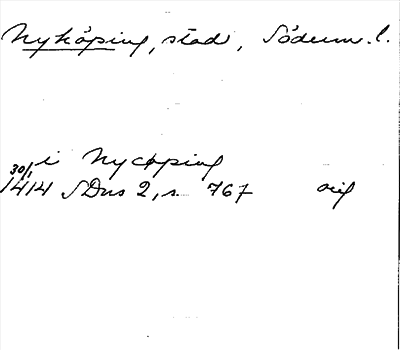 Nyköping, stad, Söderm. l.
i Nycøping
30/1
1414 SDns 2, s. 767 orig